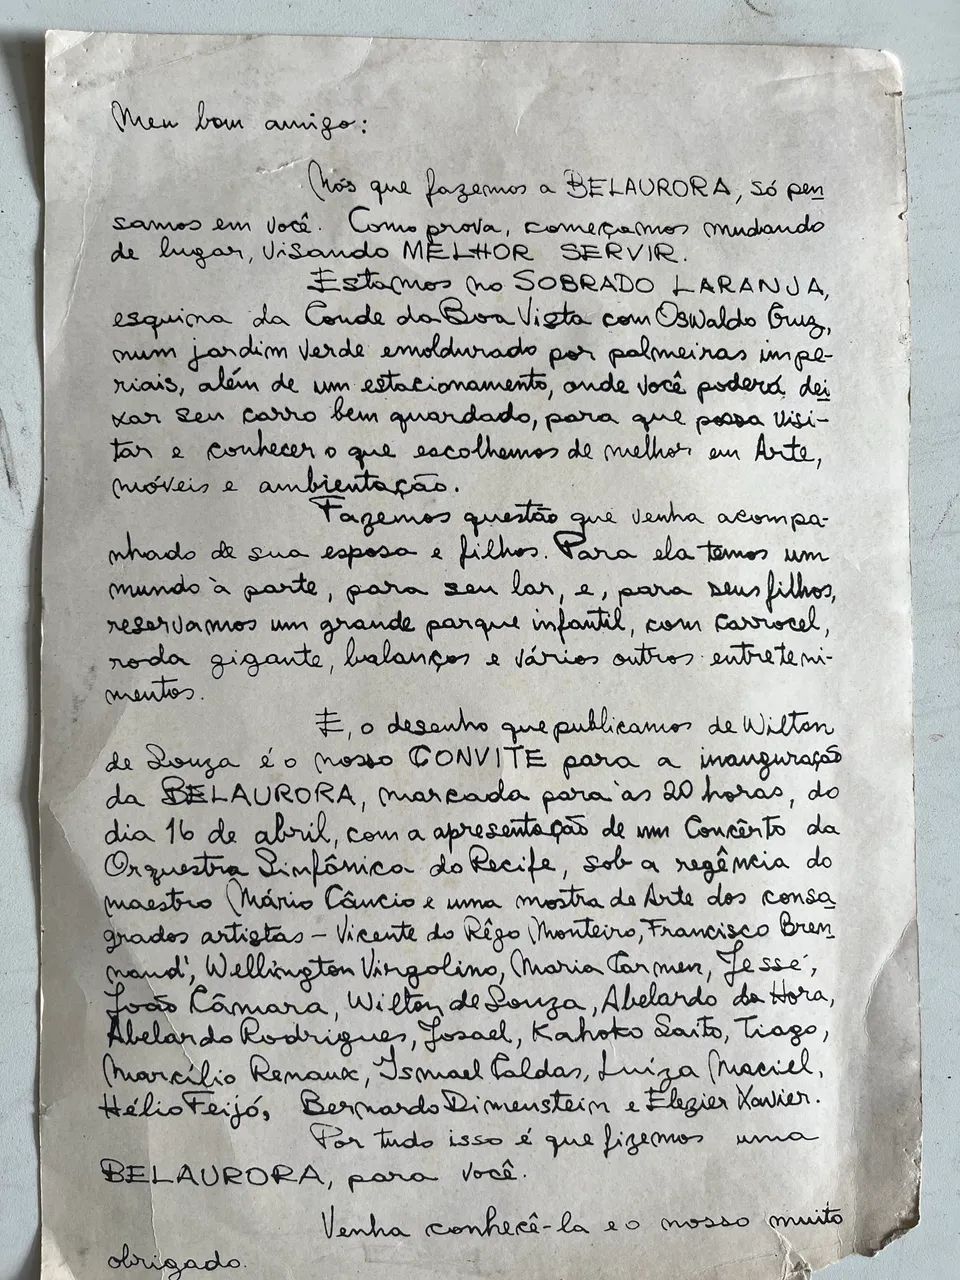 Meu bom amigo:
Nós que fazemos a BELAURORA, só pen
samos em você. Como prova, começamos mudando
de lugar, visando MELHOR SERVIR.
Estamos no SOBRADO LARANJA,
esquina da Conde da Boa Vista com Oswaldo Cruz,
num jardim verde emoldurado por palmeiras impe-
riais, além de um estacionamento, onde você poderá dei
xar seu carro bem guardado, para que possa visi-
tar e conhecer o que escolhemos de melhor em Arte,
móveis e ambientação.
Fazemos questão que venha acompa-
nhado de sua esposa e filhos. Para ela temos um
mundo à parte, para seu lar, e, para seus filhos,
reservamos um grande parque infantil, com carrocel,
roda gigante, balanços e vários outros entreteni-
mentos.
E, o desenho que publicamos de Wilton
de Souza é o nosso CONVITE para a inauguração
da BELAURORA, marcada para às 20 horas, do
dia 16 de abril, com a apresentação de um Concêrto da
Orquestra Sinfônica do Recife, sob a regência do
maestro Mário Câncio e uma mostra de Arte dos consa
grados artistas - Vicente do Rêgo Monteiro, Francisco Bren
nand', Wellington Virgolino, Maria Carmen, Jessé,
João Câmara, Wilton de Souza, Abelardo da Hora,
Abelardo Rodrigues, Josael, Kahoko Saito, Tiago,
Marcílio Renaux, Ismael Caldas, Luiza Maciel,
Hélio Feijó, Bernardo Dimenstein e Elezier Xavier.
Por tudo isso é que fizemos uma
BELAURORA, para você.
Venha conhecê-la e o nosso muito
obrigado.